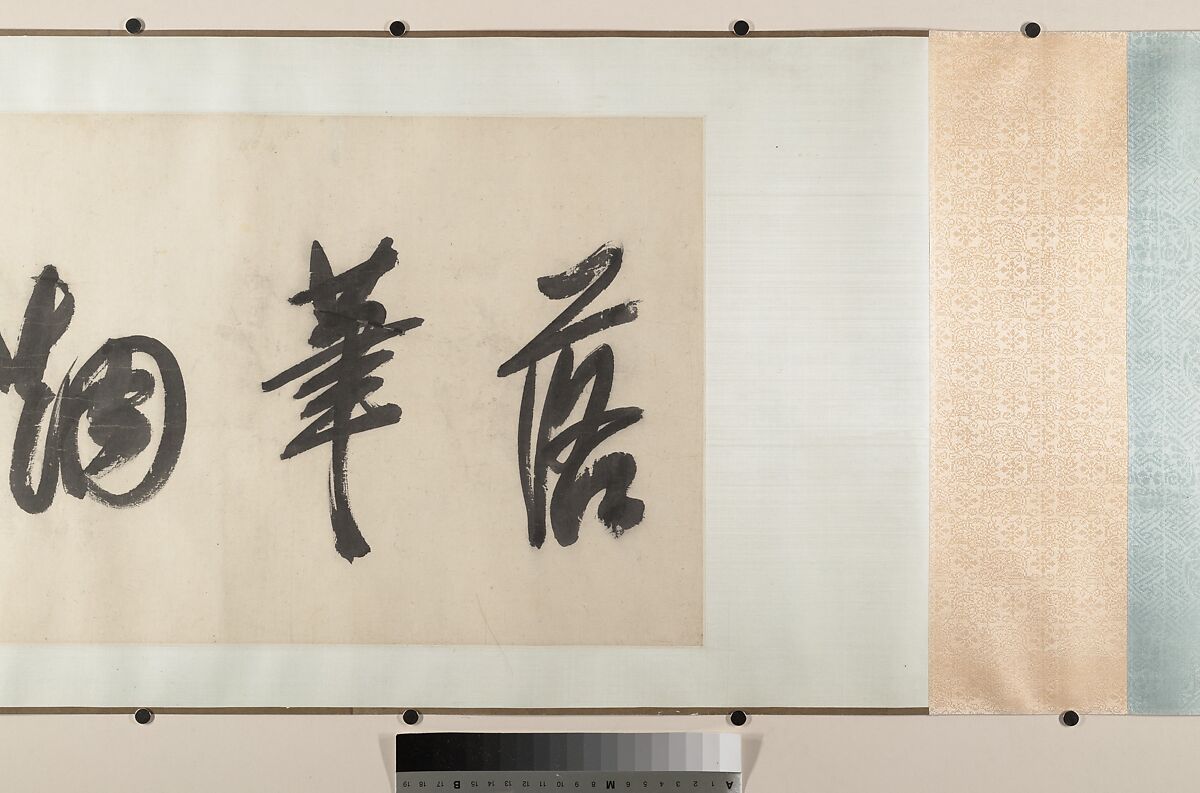 落筆烟
A 1 2 3 4 5 6 M 8 9 10 11 12 13 14 15 B 17 18 19